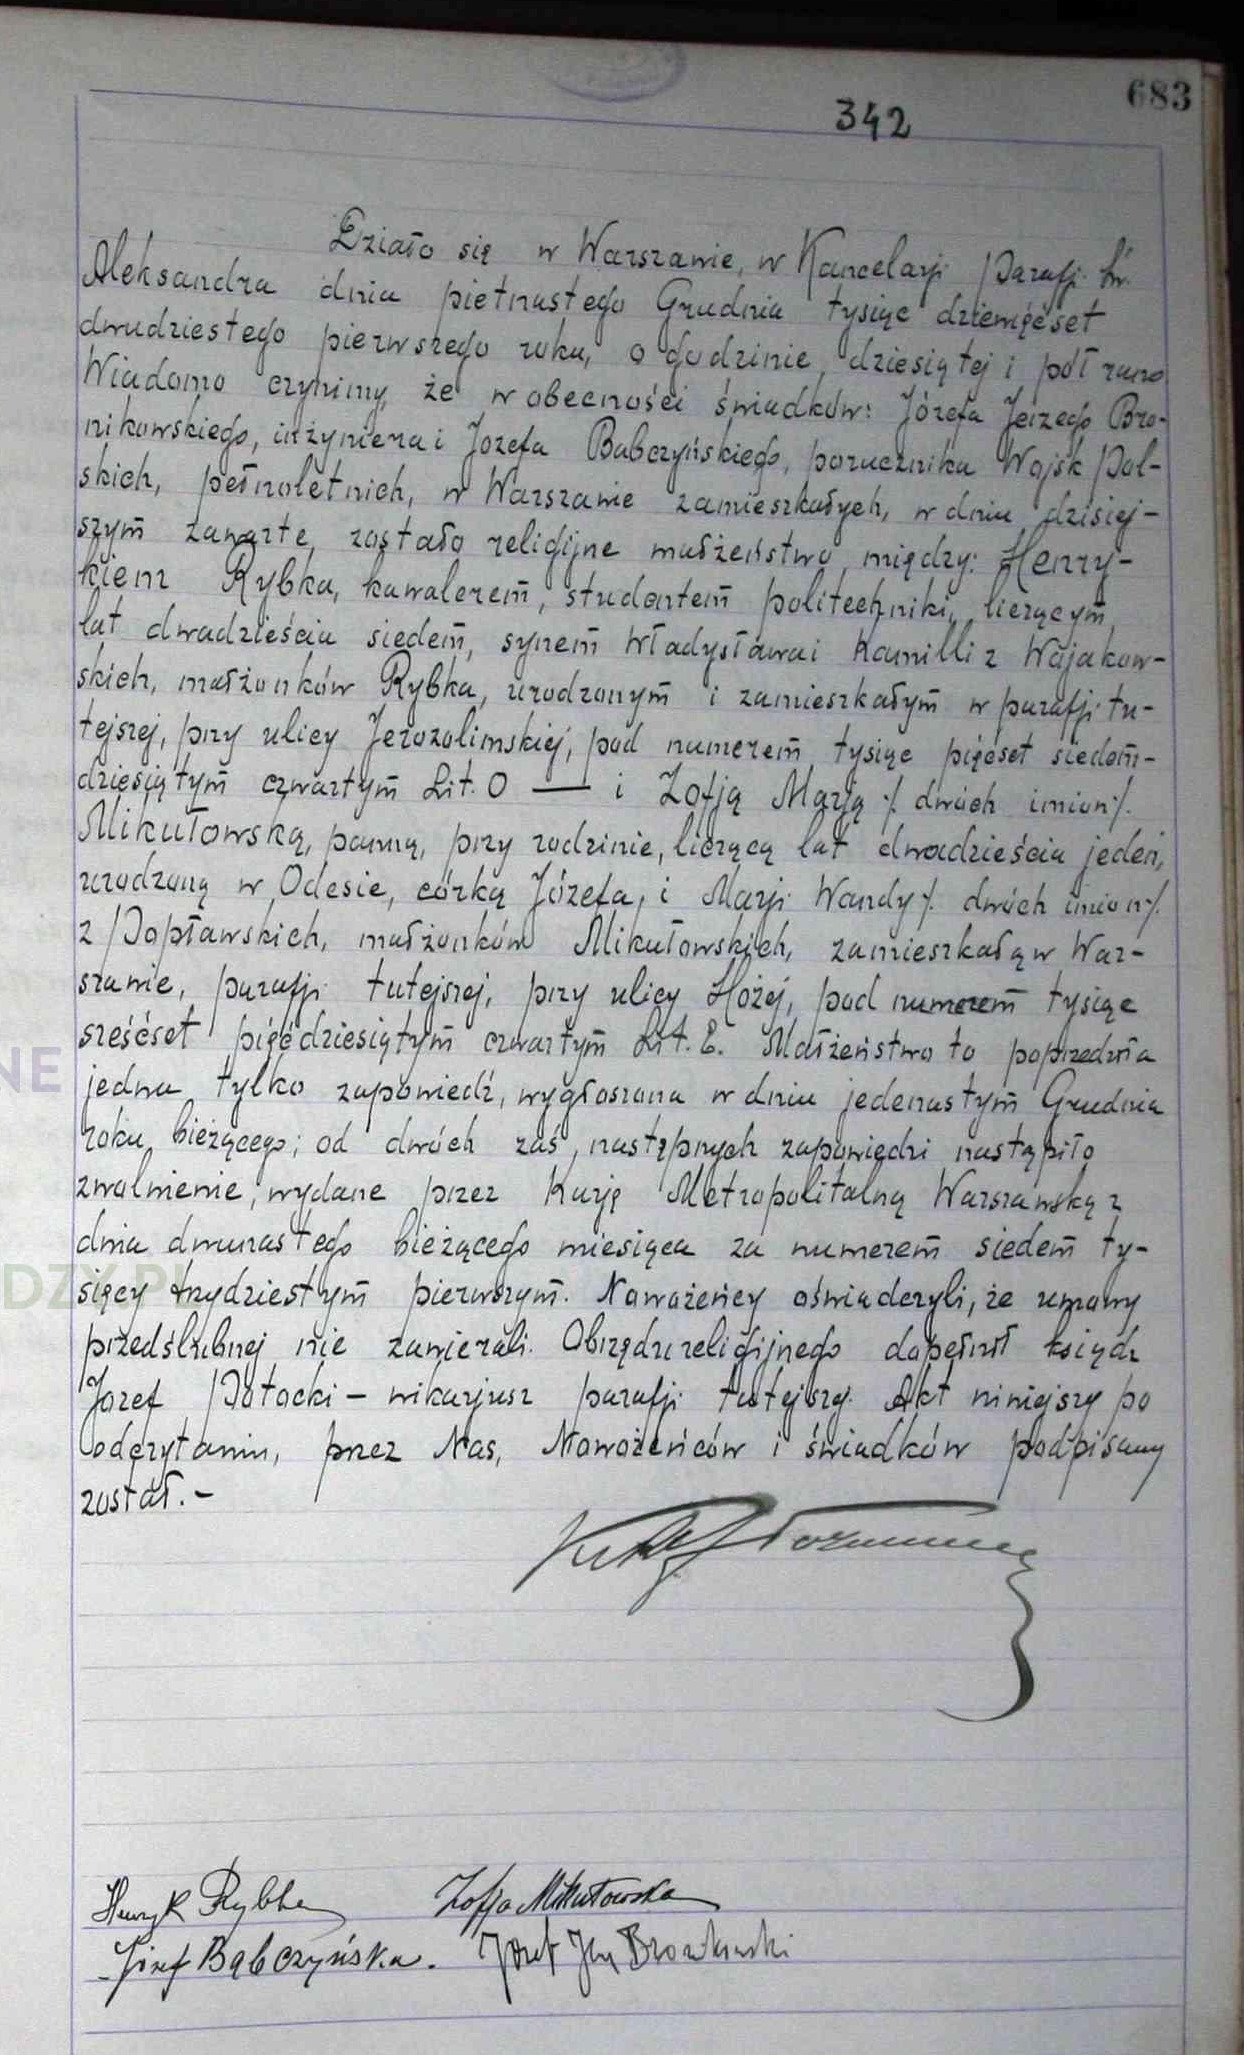 683
342
Działo się w Warszawie, w Kancelarji Parafji Św.
Aleksandra dnia piętnastego Grudnia tysiąc dziewięćset
dwudziestego pierwszego roku, o godzinie dziesiątej i pół rano
Wiadomo czynimy, że w obecności świadków: Józefa Jerzego Bro-
nikowskiego, inżyniera i Józefa Babczyńskiego, porucznika Wojsk Pol-
skich, pełnoletnich, w Warszawie zamieszkałych, w dniu dzisiej-
szym zawarte zostało religijne małżeństwo między: Henry-
kiem Rybka, kawalerem, studentem politechniki, liczącym
lat dwadzieścia siedem, synem Władysława i Kamilli z Wajakow-
skich, małżonków Rybka, urodzonym i zamieszkałym w parafji tu-
tejszej, przy ulicy Jerozolimskiej, pod numerem tysiąc pięćset siedem-
dziesiątym czwartym Lit. O — i Zofją Marją ⁒ dwóch imion ⁒
Mikułowską, panną, przy rodzinie, liczącą lat dwadzieścia jeden,
urodzoną w Odesie, córką Józefa, i Marji Wandy ⁒ dwóch imion ⁒
z Popławskich, małżonków Mikułowskich, zamieszkałą w War-
szawie, parafji tutejszej, przy ulicy Hożej, pod numerem tysiąc
sześćset pięćdziesiątym czwartym Lit. E. Małżeństwo to poprzedziła
NE
jedna tylko zapowiedź, wygłoszona w dniu jedenastym Grudnia
roku bieżącego; od dwóch zaś następnych zapowiedzi nastąpiło
zwolnienie, wydane przez Kurję Metropolitalną Warszawską z
dnia dwunastego bieżącego miesiąca za numerem siedem ty-
DZY.PL
sięcy trzydziestym pierwszym. Nowożeńcy oświadczyli, że umowy
przedślubnej nie zawierali. Obrzędu religijnego dopełnił ksiądz
Józef Potocki – wikarjusz parafji tutejszej. Akt niniejszy po
odczytaniu, przez Nas, Nowożeńców i świadków podpisany
został. –
Henryk Rybka Zofja Mikułowska
Józef Bąbczyński. Józef Jerzy Bronikowski